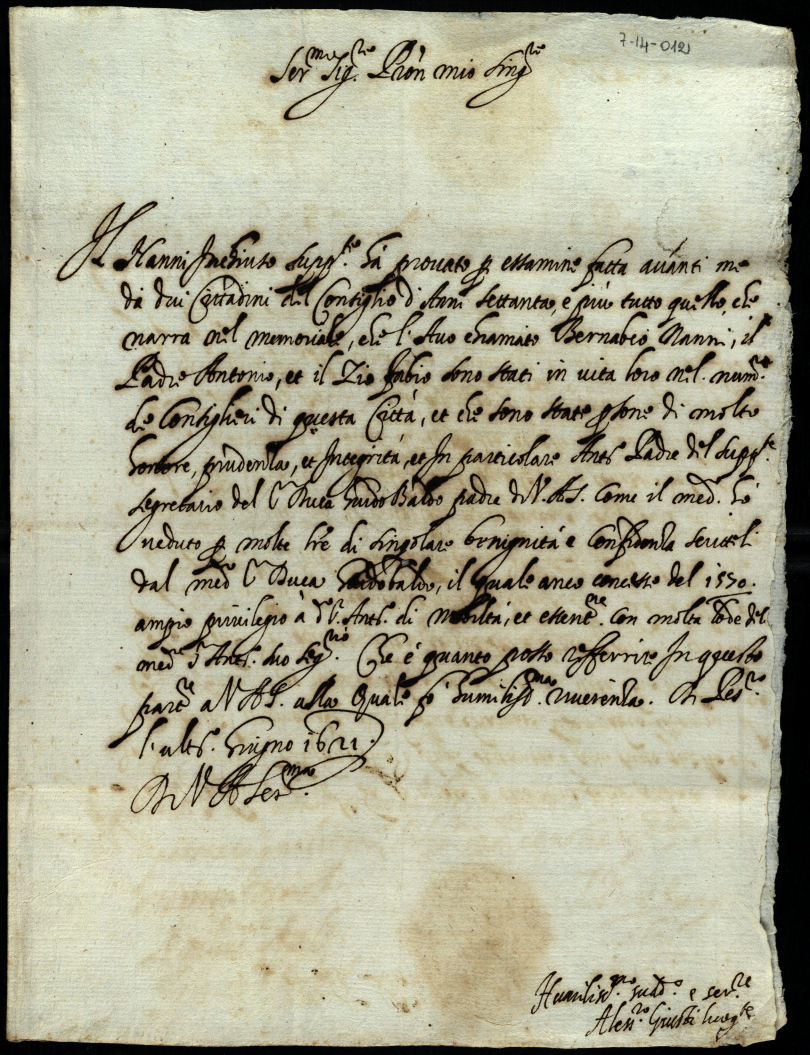 7-14-012
Ser.mo Sig.re Prôn mio Sing.re
Il Nanni Suppte hà provato p essamine fatta avanti me
da dui Cittadini del Consiglio d'Anni settanta, e più tutto quello, che
narra nel memoriale, che l'Avo chiamato Bernabeo Nanni, il
Padre Antonio, et il Zio Fabio sono stati in vita loro nel num.o
de Consiglieri di questa Città, et che sono state psone di molto
honore, prudenza, et Integrità, et In particolare Ant.o Padre del Supp.te
segretario del Duca GuidoBaldo padre di V. A. S. Come il med.o hò
veduto p molte lre di singolare benignità e Confidenza scritteli
dal med.o Duca Guidobaldo, il quale anco concesse del 1570.
ampio privilegio à d.o Ant.o di Nobiltà, et essent.ne con molta lode del
med.o Ant.o suo Seg.rio Che è quanto posso refferire In questo
part.re a V. A. S. alla quale fò humiliss.ma riverenza. Di Pes.ro
l'ult.o Giugno 1621.
Di V. A. Ser.ma
Humiliss.mo sudd.o e ser.re
Aless.ro Giusti luog.te